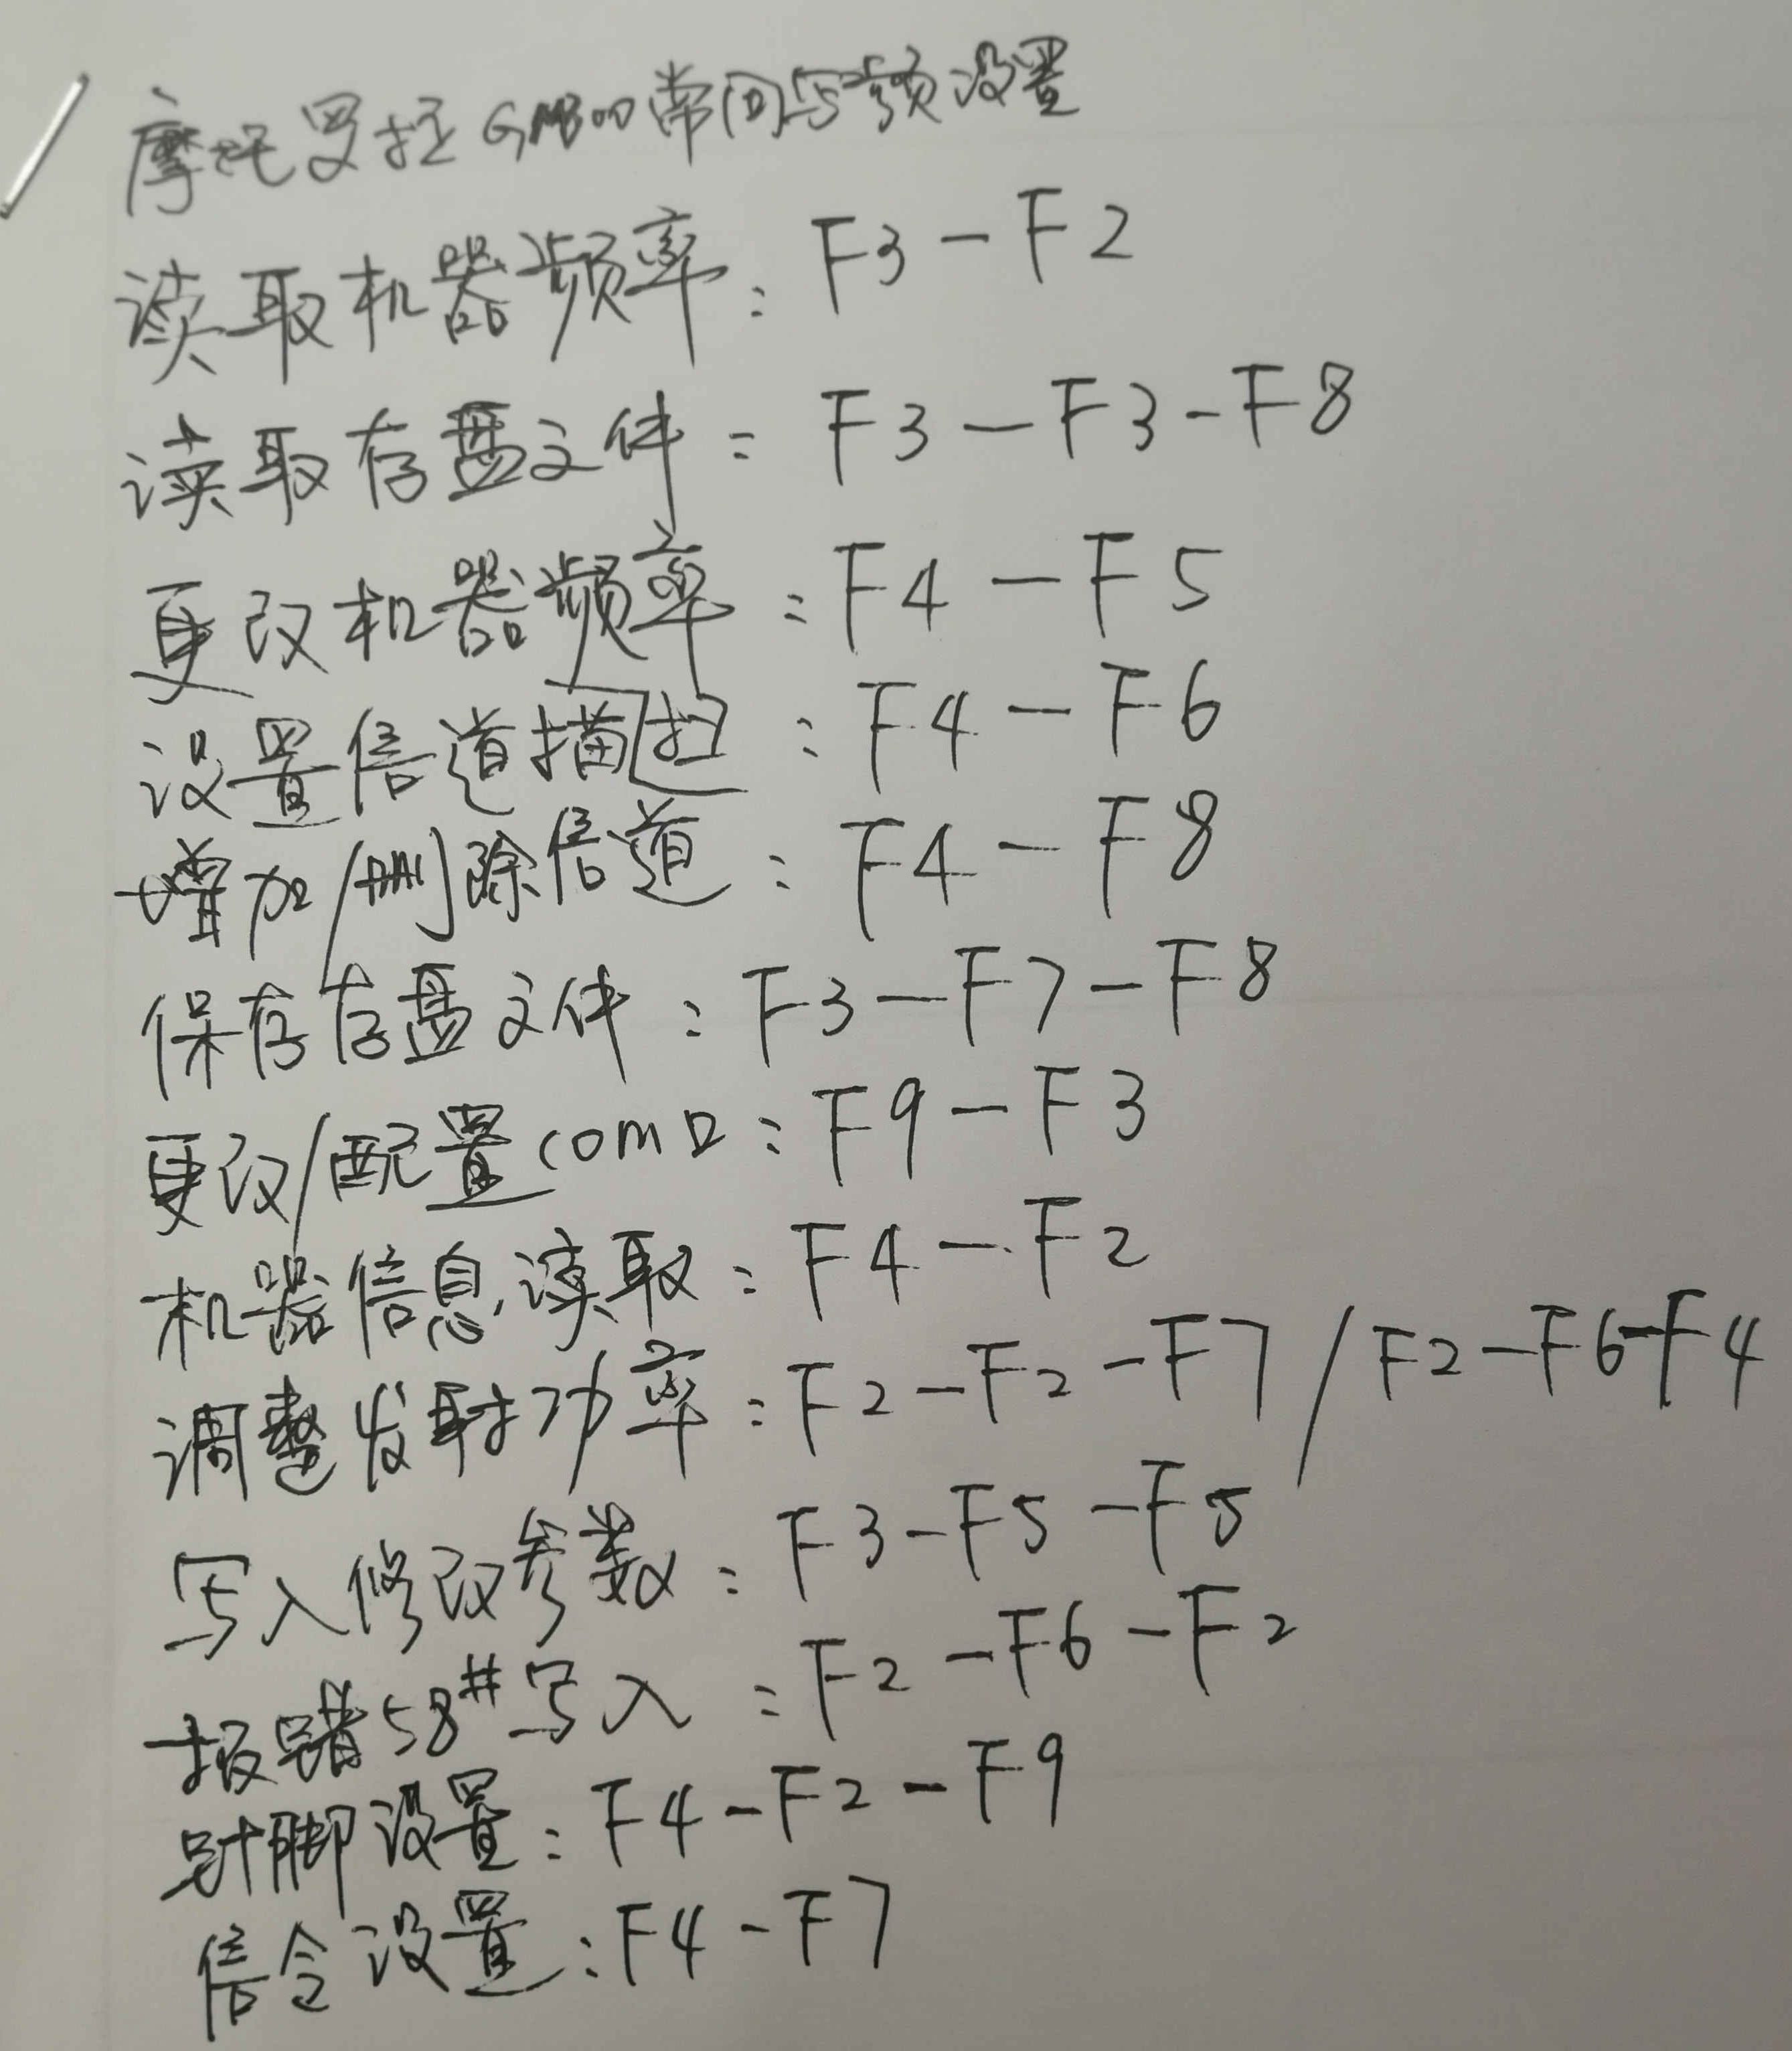 摩托罗拉GM300常用写频设置
读取机器频率：F3－F2
读取存盘文件：F3－F3－F8
更改机器频率：F4－F5
设置信道描扫：F4－F6
增加/删除信道：F4－F8
保存存盘文件：F3－F7－F8
更改/配置com口：F9－F3
机器信息读取：F4－F2
调整发射功率：F2－F2－F7/F2－F6－F4
写入修改参数：F3－F5－F5
报错58#写入：F2－F6－F2
针脚设置：F4－F2－F9
信令设置：F4－F7